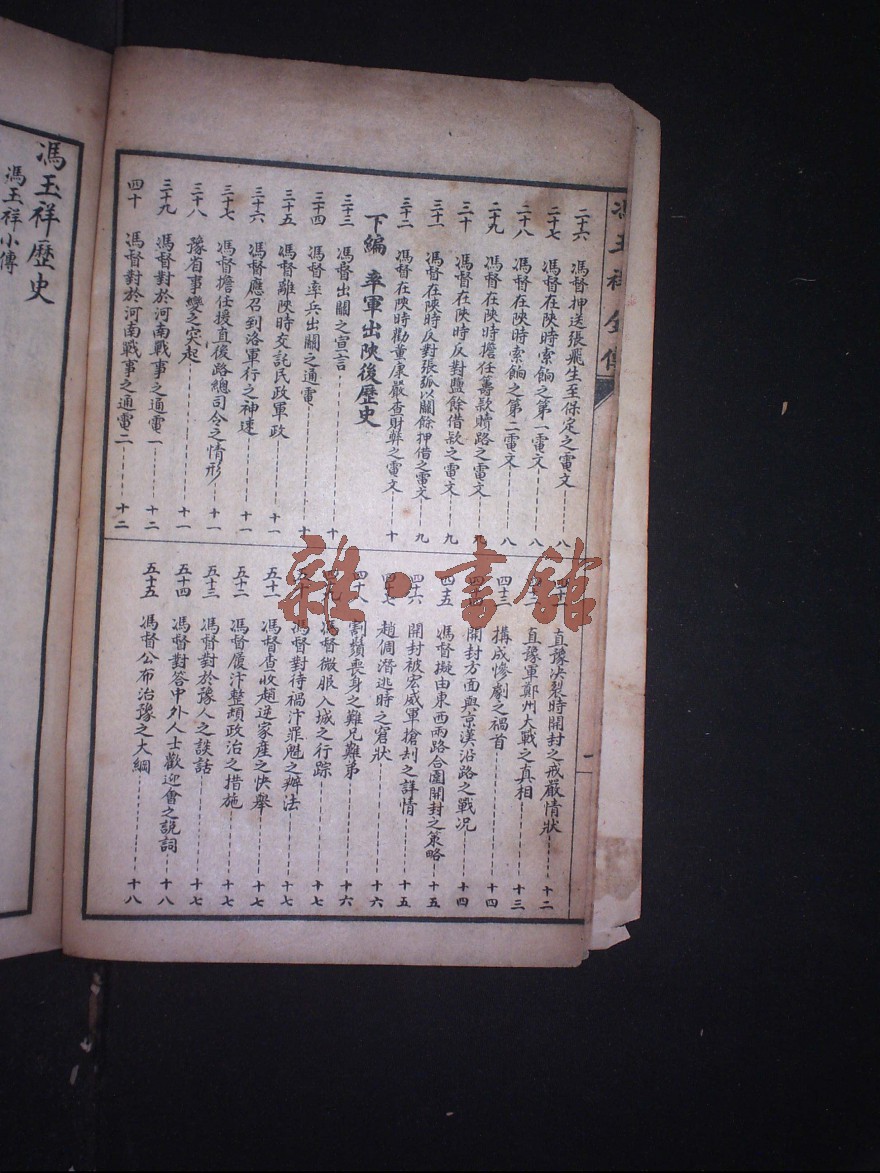 馮玉祥全傳
二十六 馮督押送張飛生至保定之電文 八
二十七 馮督在陝時索餉之第一電文 八
二十八 馮督在陝時索餉之第二電文 八
二十九 馮督在陝時擔任籌款贖路之電文 九
三十 馮督在陝時反對鹽餘借款之電文 九
三十一 馮督在陝時反對張弧以關餘押借之電文 九
三十二 馮督在陝時勸董康嚴查財弊之電文 十
下編 率軍出陝後歷史
三十三 馮督出關之宣言 十
三十四 馮督率兵出關之通電 十
三十五 馮督離陝時交託民政軍政 十一
三十六 馮督應召到洛軍行之神速 十一
三十七 馮督擔任援直後路總司令之情形 十一
三十八 豫省事變之突起 十一
三十九 馮督對於河南戰事之通電一 十二
四十 馮督對於河南戰事之通電二 十二
四十一 直豫決裂時開封之戒嚴情狀 十二
四十二 直豫軍鄭州大戰之真相 十三
四十三 構成慘劇之禍首 十四
四十四 開封方面與京漢沿路之戰況 十四
四十五 馮督擬由東西兩路合圍開封之策略 十五
四十六 開封被宏威軍搶刦之詳情 十五
四十七 趙倜潛逃時之窘狀 十六
四十八 割鬚喪身之難兄難弟 十六
四十九 馮督微服入城之行踪 十七
五十 馮督對待禍汴罪魁之辦法 十七
五十一 馮督查收趙逆家產之快舉 十七
五十二 馮督履汴整頓政治之措施 十七
五十三 馮督對於豫人之談話 十七
五十四 馮督對答中外人士歡迎會之說詞 十八
五十五 馮督公布治豫之大綱 十八
一
馮玉祥歷史
馮玉祥小傳
雜·書館